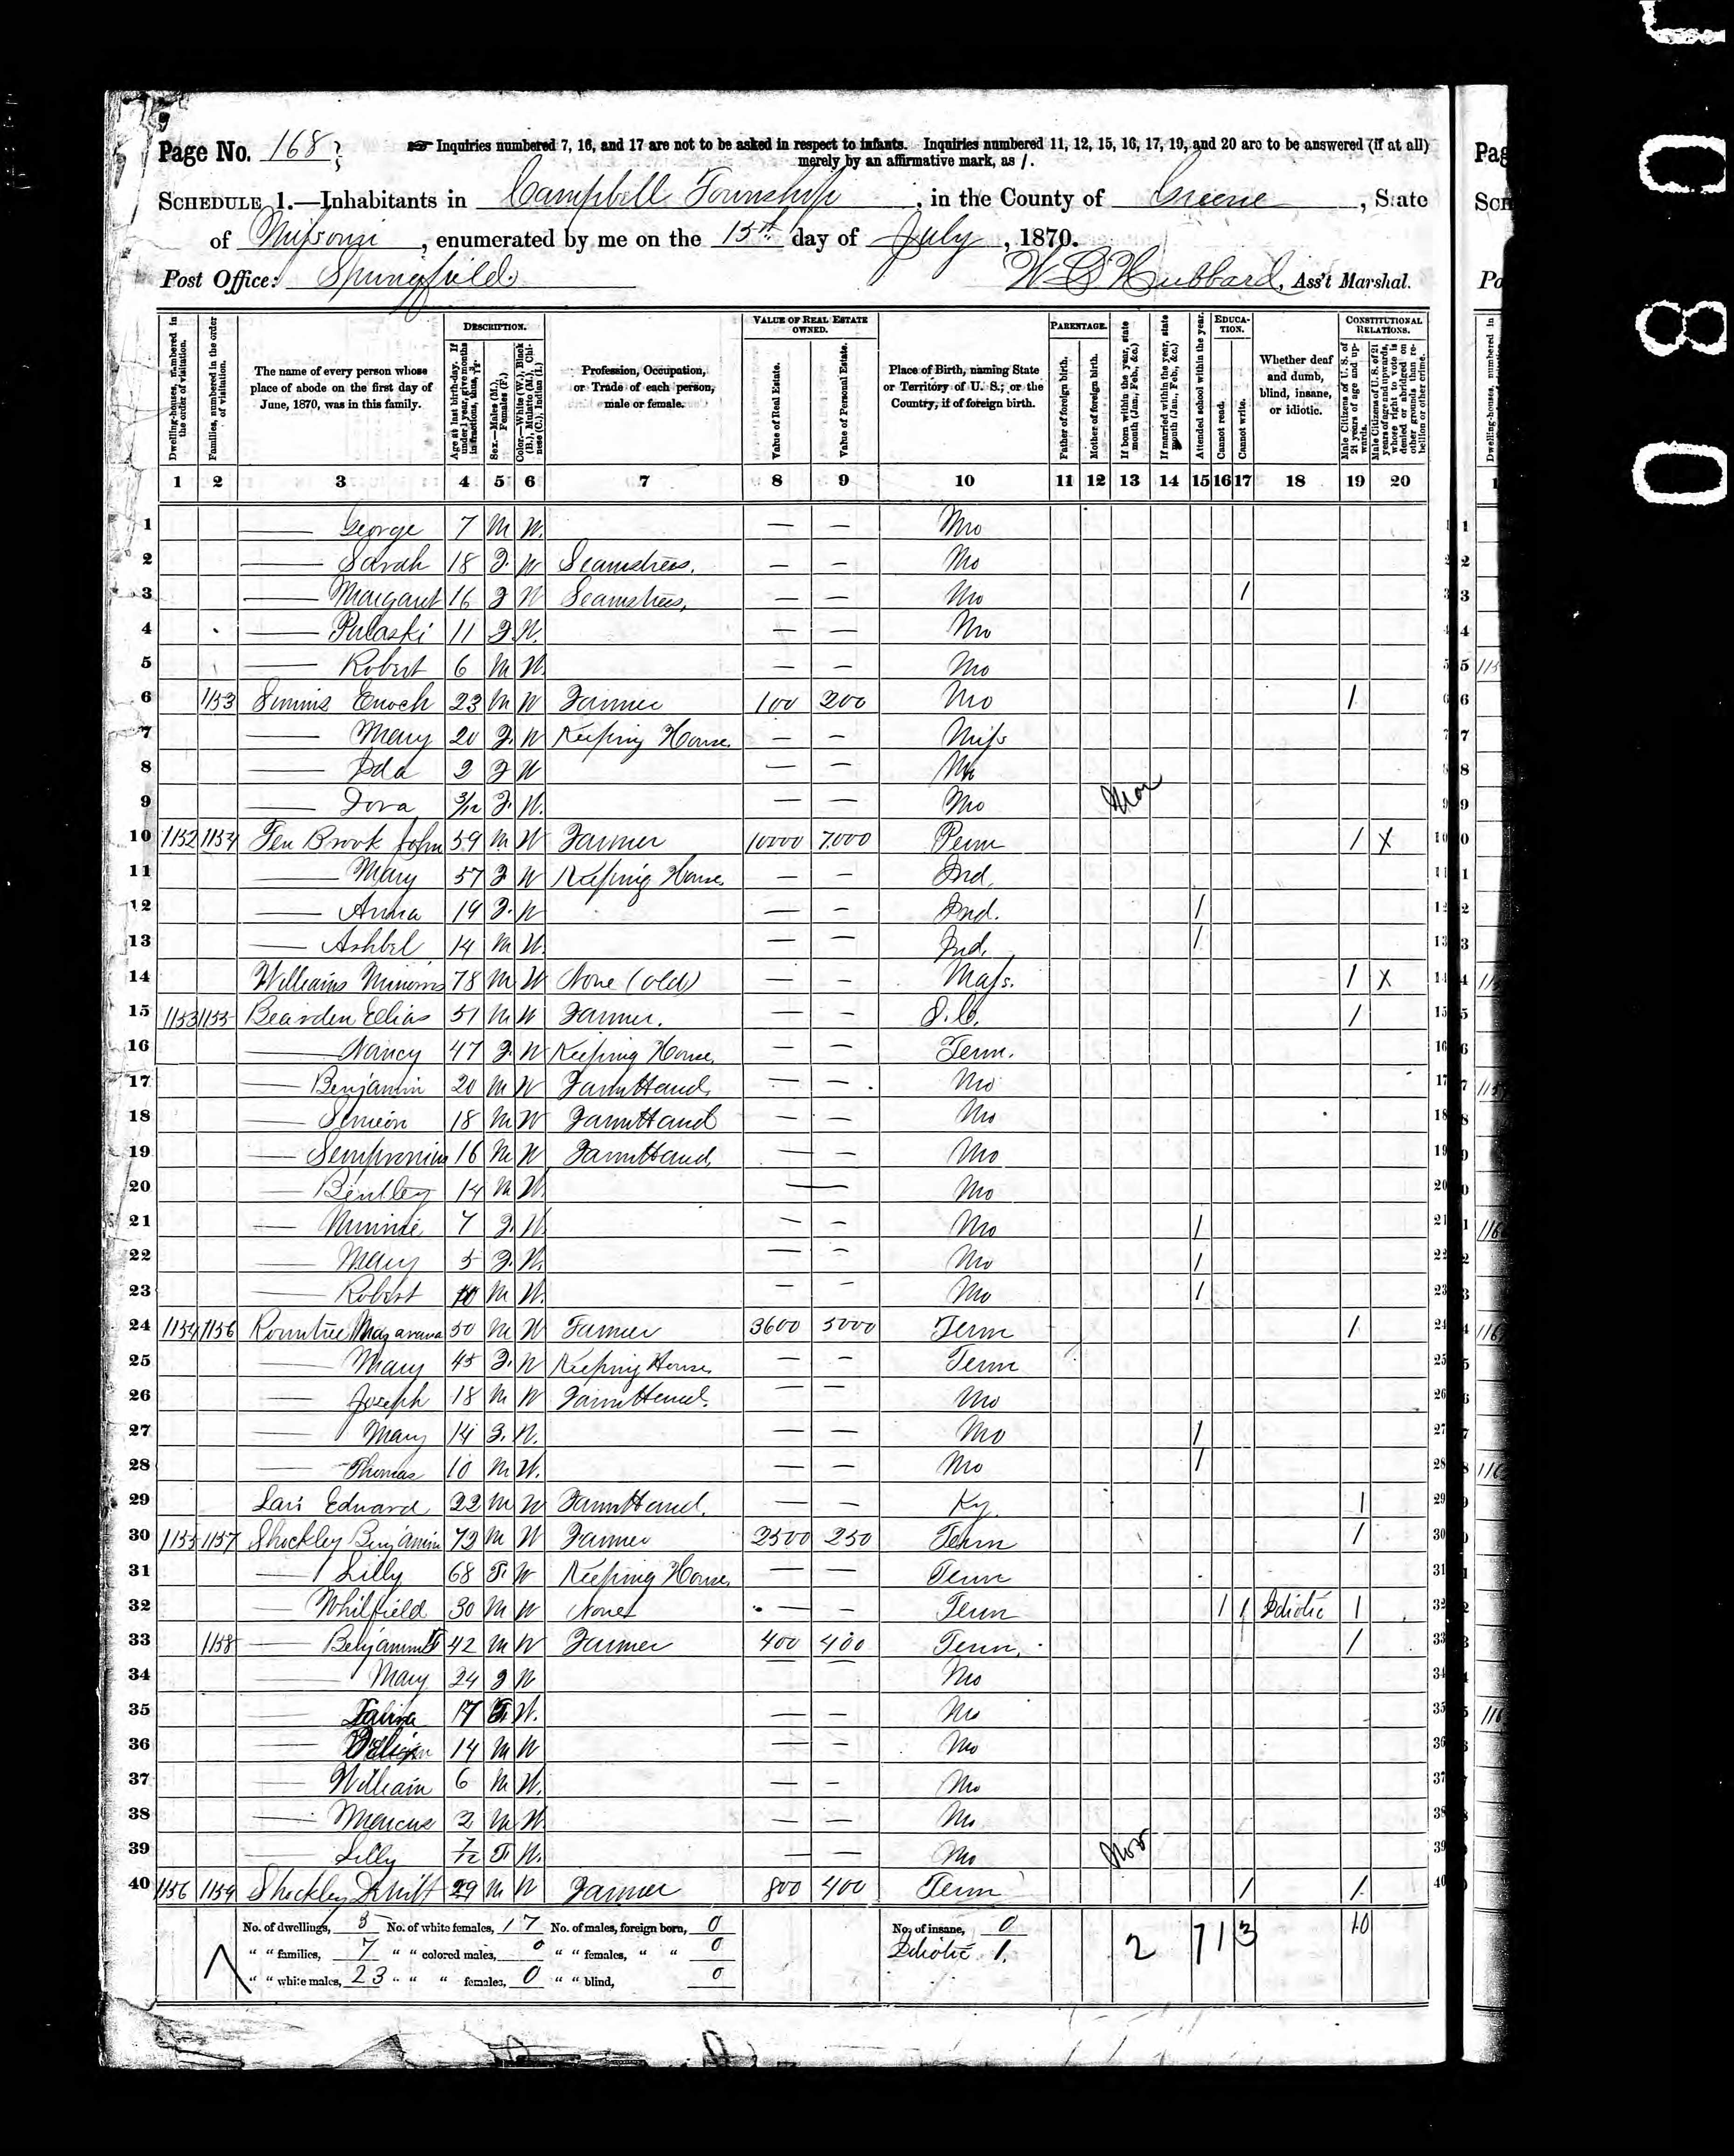 Page No. 168
Inquiries numbered 7, 16, and 17 are not to be asked in respect to infants. Inquiries numbered 11, 12, 15, 16, 17, 19, and 20 are to be answered (if at all) merely by an affirmative mark, as /.
SCHEDULE 1.—Inhabitants in Campbell Township, in the County of Greene, State
of Missouri, enumerated by me on the 15th day of July, 1870.
Post Office: Springfield. Hubbard, Ass't Marshal.
Dwelling-houses, numbered in the order of visitation.
Families, numbered in the order of visitation.
The name of every person whose place of abode on the first day of June, 1870, was in this family.
DESCRIPTION.
Age at last birth-day. If under 1 year, give months in fractions, thus, 3/12.
Sex.—Males (M.), Females (F.)
Color.—White (W.), Black (B.), Mulatto (M.), Chinese (C.), Indian (I.)
Profession, Occupation, or Trade of each person, male or female.
VALUE OF REAL ESTATE OWNED.
Value of Real Estate.
Value of Personal Estate.
Place of Birth, naming State or Territory of U. S.; or the Country, if of foreign birth.
PARENTAGE.
Father of foreign birth.
Mother of foreign birth.
If born within the year, state month (Jan., Feb., &c.)
If married within the year, state month (Jan., Feb., &c.)
Attended school within the year.
EDUCATION.
Cannot read.
Cannot write.
Whether deaf and dumb, blind, insane, or idiotic.
CONSTITUTIONAL RELATIONS.
Male Citizens of U. S. of 21 years of age and upwards.
Male Citizens of U. S. of 21 years of age and upwards, whose right to vote is denied or abridged on other grounds than rebellion or other crime.
1 2 3 4 5 6 7 8 9 10 11 12 13 14 15 16 17 18 19 20
1 — George 7 M W. — — Mo
2 — Sarah 18 F. W Seamstress. — — Mo
3 — Margaret 16 F W Seamstress, — — Mo /
4 — Pulaski 11 F W. — — Mo
5 — Robert 6 M W. — — Mo
6 1153 Simms Enoch 23 M W Farmer 100 200 Mo /
7 — Mary 20 F. W Keeping House. — — Miss
8 — Ida 2 F W — — Mo
9 — Dora 3/12 F. W. — — Mo Mar
10 1152 1154 Ten Brook John 59 M W Farmer 10000 7000 Penn / X
11 — Mary 57 F W Keeping House. — — Ind.
12 — Anna 19 F. W — — Ind. /
13 — Ashbel 14 M W. — — Ind. /
14 Williams 78 M W None (old) — — Mass. / X
15 1153 1155 Bearden Elias 51 M W Farmer. — — S.C. /
16 — Nancy 47 F. W Keeping House. — — Tenn.
17 — Benjamin 20 M W Farm Hand. — — Mo
18 — Simeon 18 M W Farm Hand — — Mo
19 — Sempronius 16 M W Farm Hand. — — Mo
20 — Bentley 14 M W. — Mo
21 — Minnie 7 F. W. — — Mo /
22 — Mary 5 F. W. — — Mo /
23 — Robert 10 M W. — — Mo /
24 1154 1156 Rountree 50 M W Farmer 3600 5000 Tenn /
25 — Mary 45 F. W Keeping House. — — Tenn
26 — Joseph 18 M W Farm Hand. — — Mo
27 — Mary 14 F. W. — — Mo /
28 — Thomas 10 M W. — — Mo /
29 Edward 22 M W Farm Hand. — — Ky. /
30 1155 1157 Shockley Benjamin 72 M W Farmer 2500 250 Tenn /
31 — Lilly 68 F. W Keeping House. — — Tenn
32 — Whitfield 30 M W None — — Tenn / / Idiotic /
33 1158 — Benjamin 42 M W Farmer 400 400 Tenn. /
34 — Mary 24 F W — — Mo
35 — 17 F. W. — — Mo
36 — 14 M W — — Mo
37 — William 6 M W. — — Mo
38 — Marcus 2 M W. — — Mo
39 — Lilly 7/12 F. W. — — Mo Nov
40 1156 1159 Shockley 29 M W Farmer 800 400 Tenn / /
No. of dwellings, 5 No. of white females, 17 No. of males, foreign born, 0 No. of insane, 0 2 7 1 3 10
" " families, 7 " " colored males, 0 " " females, " " 0 Idiotic 1.
" " white males, 23 " " " females, 0 " " blind, 0